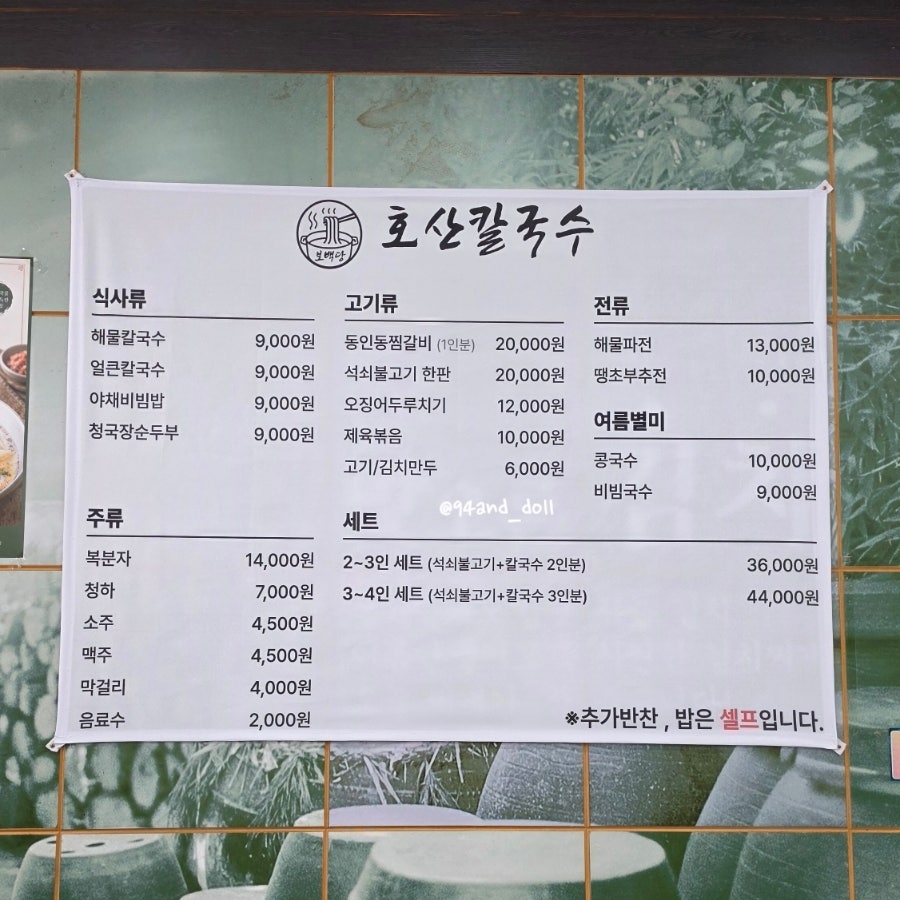 보백당
호산칼국수
식사류
해물칼국수 9,000원
얼큰칼국수 9,000원
야채비빔밥 9,000원
청국장순두부 9,000원
고기류
동인동찜갈비 (1인분) 20,000원
석쇠불고기 한판 20,000원
오징어두루치기 12,000원
제육볶음 10,000원
고기/김치만두 6,000원
전류
해물파전 13,000원
땡초부추전 10,000원
여름별미
콩국수 10,000원
비빔국수 9,000원
@94and_doll
주류
복분자 14,000원
청하 7,000원
소주 4,500원
맥주 4,500원
막걸리 4,000원
음료수 2,000원
세트
2~3인 세트 (석쇠불고기+칼국수 2인분) 36,000원
3~4인 세트 (석쇠불고기+칼국수 3인분) 44,000원
※추가반찬 , 밥은 셀프입니다.